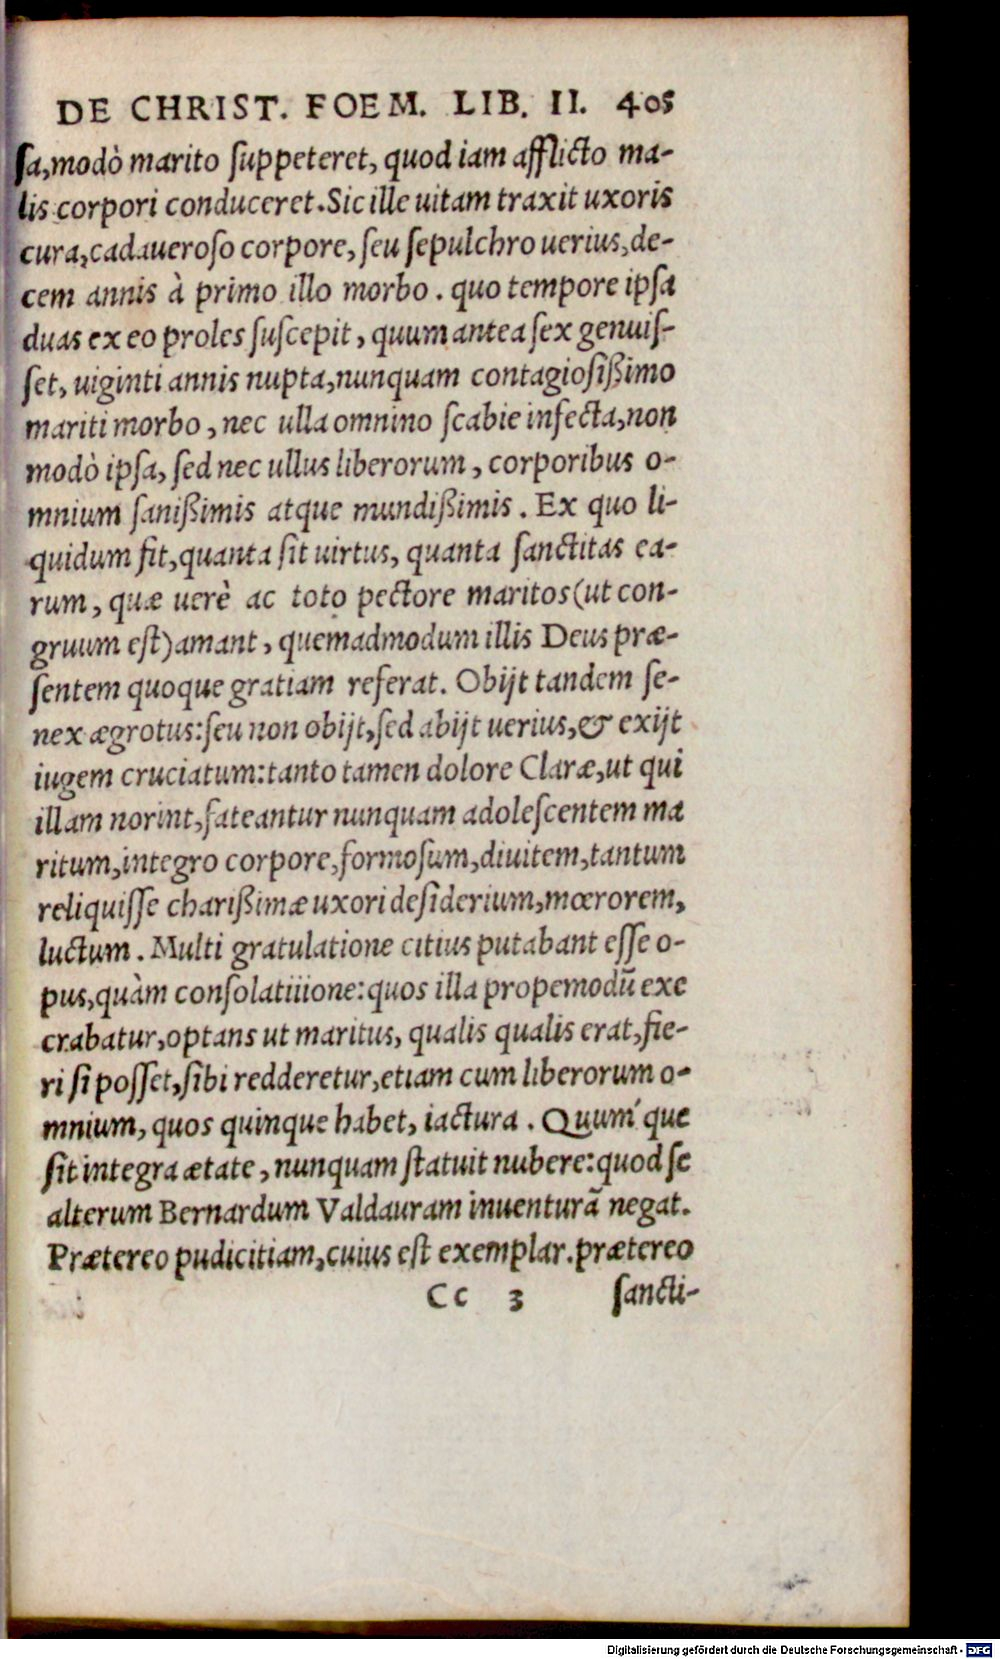 DE CHRIST. FOEM. LIB. II. 405
ſa,modò marito ſuppeteret, quod iam afflicto ma-
lis corpori conduceret.Sic ille uitam traxit uxoris
cura,cadaueroſo corpore, ſeu ſepulchro uerius,de-
cem annis à primo illo morbo. quo tempore ipſa
duas ex eo proles ſuſcepit, quum antea ſex genuiſ-
ſet, uiginti annis nupta,nunquam contagioſißimo
mariti morbo, nec ulla omnino ſcabie infecta,non
modò ipſa, ſed nec ullus liberorum, corporibus o-
mnium ſanißimis atque mundißimis. Ex quo li-
quidum fit,quanta ſit uirtus, quanta ſanctitas ea-
rum, quæ uerè ac toto pectore maritos(ut con-
gruum eſt)amant, quemadmodum illis Deus præ-
ſentem quoque gratiam referat. Obijt tandem ſe-
nex ægrotus:ſeu non obijt,ſed abijt uerius,& exijt
iugem cruciatum:tanto tamen dolore Claræ,ut qui
illam norint,fateantur nunquam adoleſcentem ma
ritum,integro corpore,formoſum,diuitem,tantum
reliquiſſe charißimæ uxori deſiderium,mœrorem,
luctum. Multi gratulatione citius putabant eſſe o-
pus,quàm conſolatiiione:quos illa propemodū exe
crabatur,optans ut maritus, qualis qualis erat,fie-
ri ſi poſſet,ſibi redderetur,etiam cum liberorum o-
mnium, quos quinque habet, iactura. Quuḿ que
ſit integra ætate, nunquam ſtatuit nubere:quod ſe
alterum Bernardum Valdauram inuenturā negat.
Prætereo pudicitiam,cuius eſt exemplar.prætereo
Cc 3 ſancti-
Digitalisierung gefördert durch die Deutsche Forschungsgemeinschaft - DFG